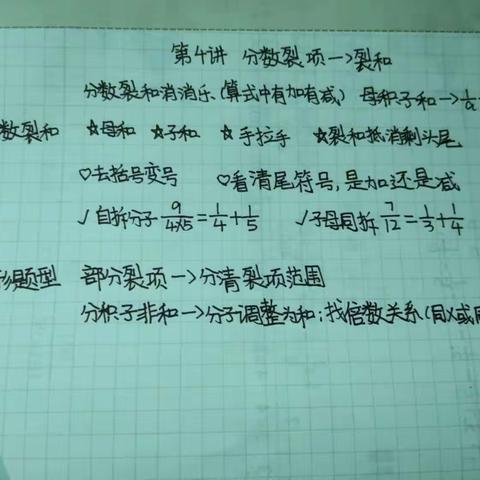 第4讲 分数裂项→裂和
分数裂和消消乐(算式中有加有减) 母积子和→
数裂和 ☆母和 ☆子和 ☆手拉手 ☆裂和抵消剩头尾
♡去括号变号 ♡看清尾符号,是加还是减
√自拆分子 9/4×5=1/4+1/5 √子母同拆 7/12=1/3+1/4
形题型 部分裂项→分清裂项范围
分积子非和→分子调整为和;找倍数关系(同×或